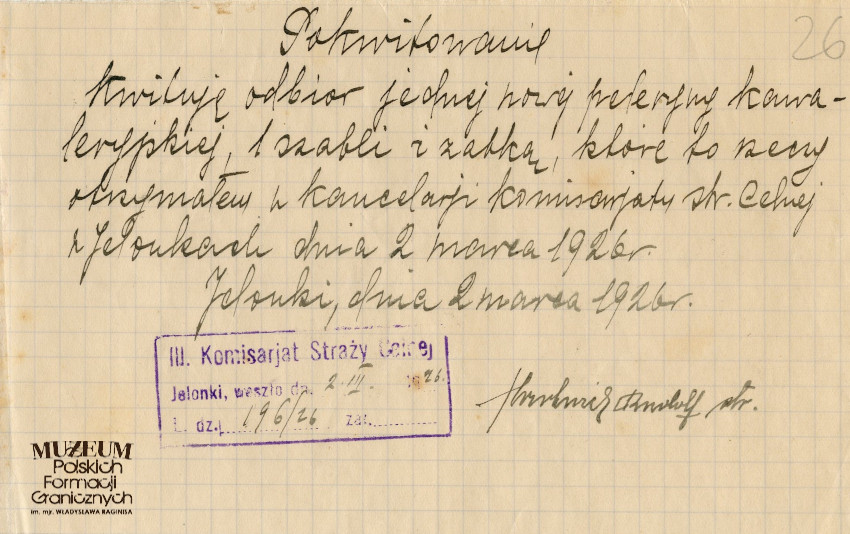 Pokwitowanie
26
Kwituję odbiór jednej nowej peleryny kawa-
leryjskiej, 1 szabli i żabką, które to rzeczy
otrzymałem w kancelarji komisarjatu str. Celnej
w Jelonkach dnia 2 marca 1926r.
Jelonki, dnia 2 marca 1926r.
III. Komisarjat Straży Celnej
Jelonki, weszło dn. 2.III. 1926.
L. dz. 196/26 zał.
Rudolf str.
MUZEUM
Polskich
Formacji
Granicznych
im. mjr. WŁADYSŁAWA RAGINISA